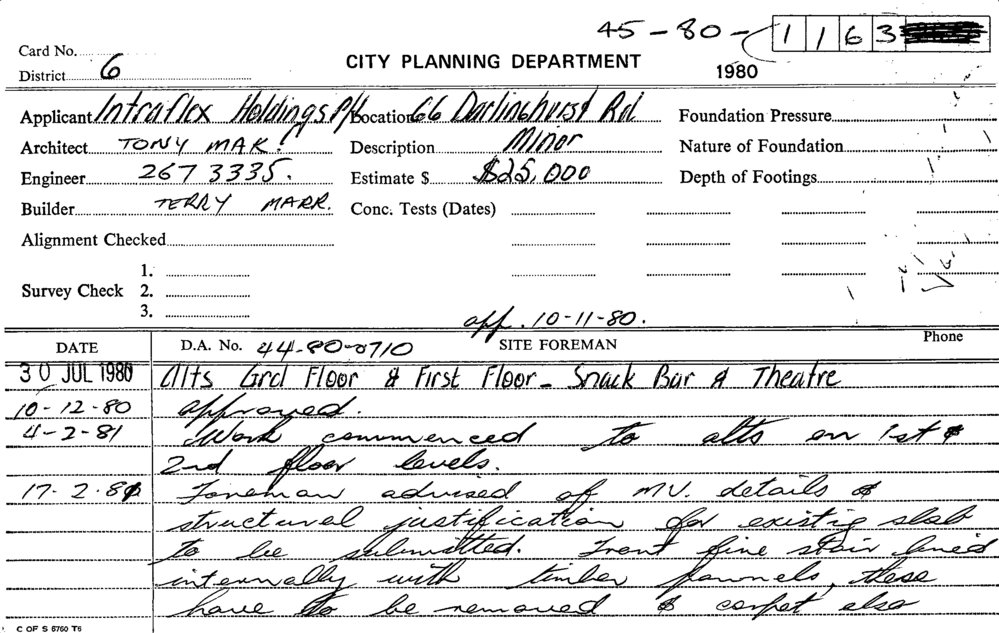 45-80-1163
Card No.
CITY PLANNING DEPARTMENT
1980
District 6
Applicant Intraflex Holdings P/L Location 66 Darlinghurst Rd Foundation Pressure
Architect TONY MAK. Description Minor Nature of Foundation
Engineer 267 3335. Estimate $ $25,000 Depth of Footings
Builder TERRY MARR. Conc. Tests (Dates)
Alignment Checked
1.
Survey Check 2.
3.
app. 10-11-80.
DATE D.A. No. 44-80-0710 SITE FOREMAN Phone
30 JUL 1980 Alts Grd Floor & First Floor - Snack Bar & Theatre
10-12-80 approved.
4-2-81 Work commenced to alts on 1st &
2nd floor levels.
17-2-81 Foreman advised of MV. details &
structural justification for existig slab
to be submitted. Front fire stair lined
internally with timber pannels, these
have to be removed & carpet also
C OF S 6760 T6